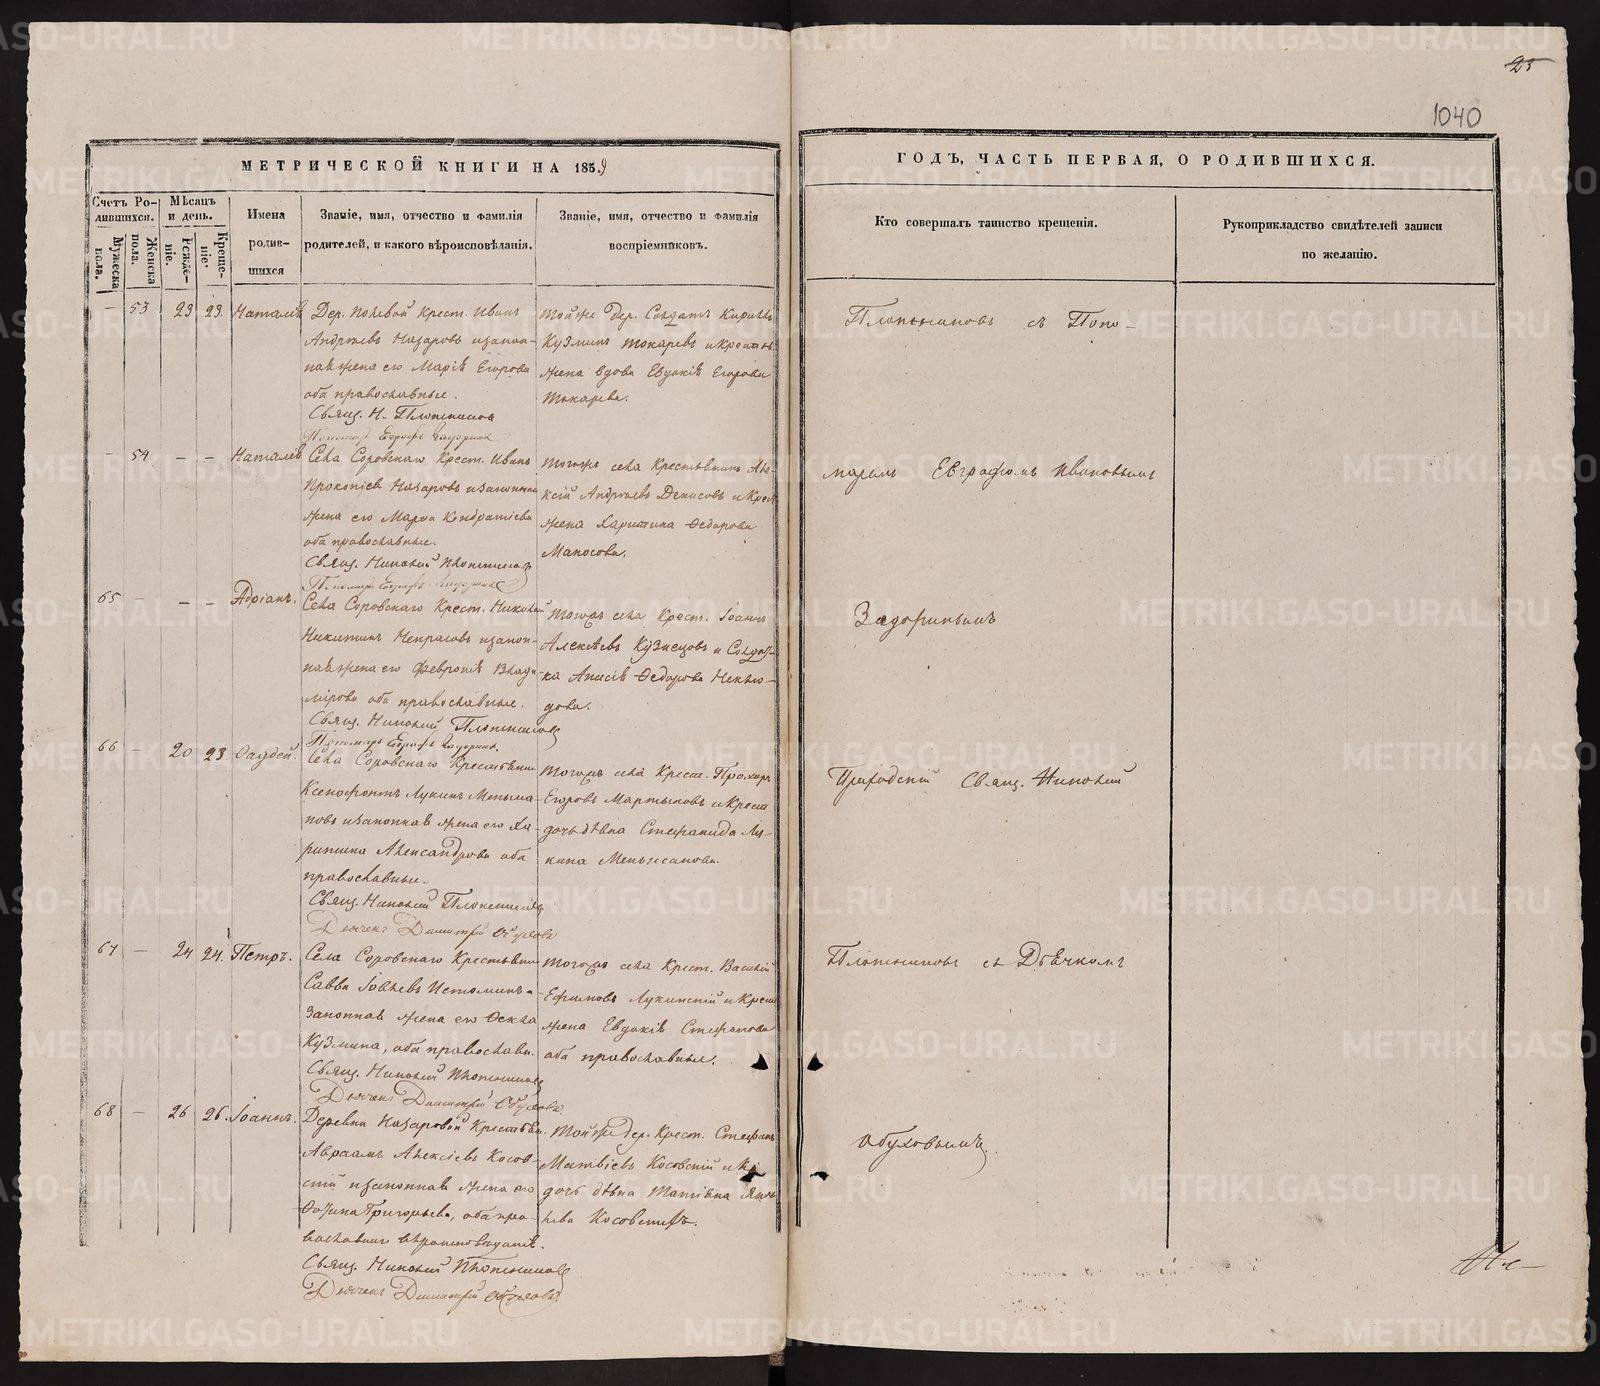 25
1040
МЕТРИЧЕСКОЙ КНИГИ НА 1859
ГОДЪ, ЧАСТЬ ПЕРВАЯ, О РОДИВШИХСЯ.
Счетъ Родившихся.
Мужеска пола.
Женска пола.
Мѣсяцъ и день.
Рожденіе.
Крещеніе.
Имена родившихся
Званіе, имя, отчество и фамилія
родителей, и какого вѣроисповѣданія.
Званіе, имя, отчество и фамилія
воспріемниковъ.
Кто совершалъ таинство крещенія.
Рукоприкладство свидѣтелей записи
по желанію.
– 53 23 23 Наталія
Дер. Полевой Крест. Иванъ
Андреевъ Назаровъ и закон-
ная жена его Марія Егорова
оба православные.
Свящ. Н. Плотниковъ
Пономарь
тойже дер. Солдатъ
Кузминъ Токаревъ и
жена вдова Евдокія Егорова
Токарева.
Плотниковъ съ Поно-
– 54 – – Наталія
Села Соровскаго Крест. Иванъ
Прокопіев Назаровъ и законная
жена его Марѳа Кондратіева
оба православные.
Свящ. Николай Плотниковъ
Пономарь
тогожъ села Крестьянинъ Але-
ксій Андреевъ Денисовъ и Крест.
жена Харитина Ѳедорова
маремъ Евграфомъ Ивановымъ
65 – – – Адріанъ.
Села Соровскаго Крест. Николай
Никитинъ Некрасовъ и закон-
ная жена его Февронія Влади-
мірова оба православные.
Свящ. Николай Плотниковъ
Пономарь
тогожъ села Крест. Іоаннъ
Алексѣевъ Кузнецовъ и Солдат-
ка Анисія Ѳедорова Неклю-
дова.
Задоринымъ
66 – 20 23 Ѳаддей.
Села Соровскаго Крестьянинъ
Ксенофонтъ Лукинъ Меньша-
ковъ и законная жена его Ха-
ритина Александрова оба
православные.
Свящ. Николай Плотниковъ
Дьячекъ Димитрій Обуховъ
тогожъ села Крест. Прохоръ
Егоровъ Мартыновъ и Крест.
дочь дѣвка Стефанида Лу-
кина Меньшакова.
Приходскій Свящ. Николай
67 – 24 24. Петръ.
Села Соровскаго Крестьянинъ
Савва Іовлевъ Истоминъ и
законная жена его Ѳекла
Кузмина, оба православн.
Свящ. Николай Плотниковъ
Дьячекъ Димитрій Обуховъ.
тогожъ села Крест. Василій
Ефимовъ и Крест.
жена Евдокія Стефанова
оба православные.
Плотниковъ съ Дьячкомъ
68 – 26 26. Іоаннъ.
Деревни Назаровой Крестьян.
Авраамъ Алексіевъ Косов-
скій и законная жена его
Григорьева, оба пра-
вославнаго вѣроисповѣданія.
Свящ. Николай Плотниковъ
Дьячекъ Димитрій Обуховъ.
тойже дер. Крест. Стефанъ
Матвіевъ Косовскій и
дочь дѣвка Татіана
Обуховымъ.